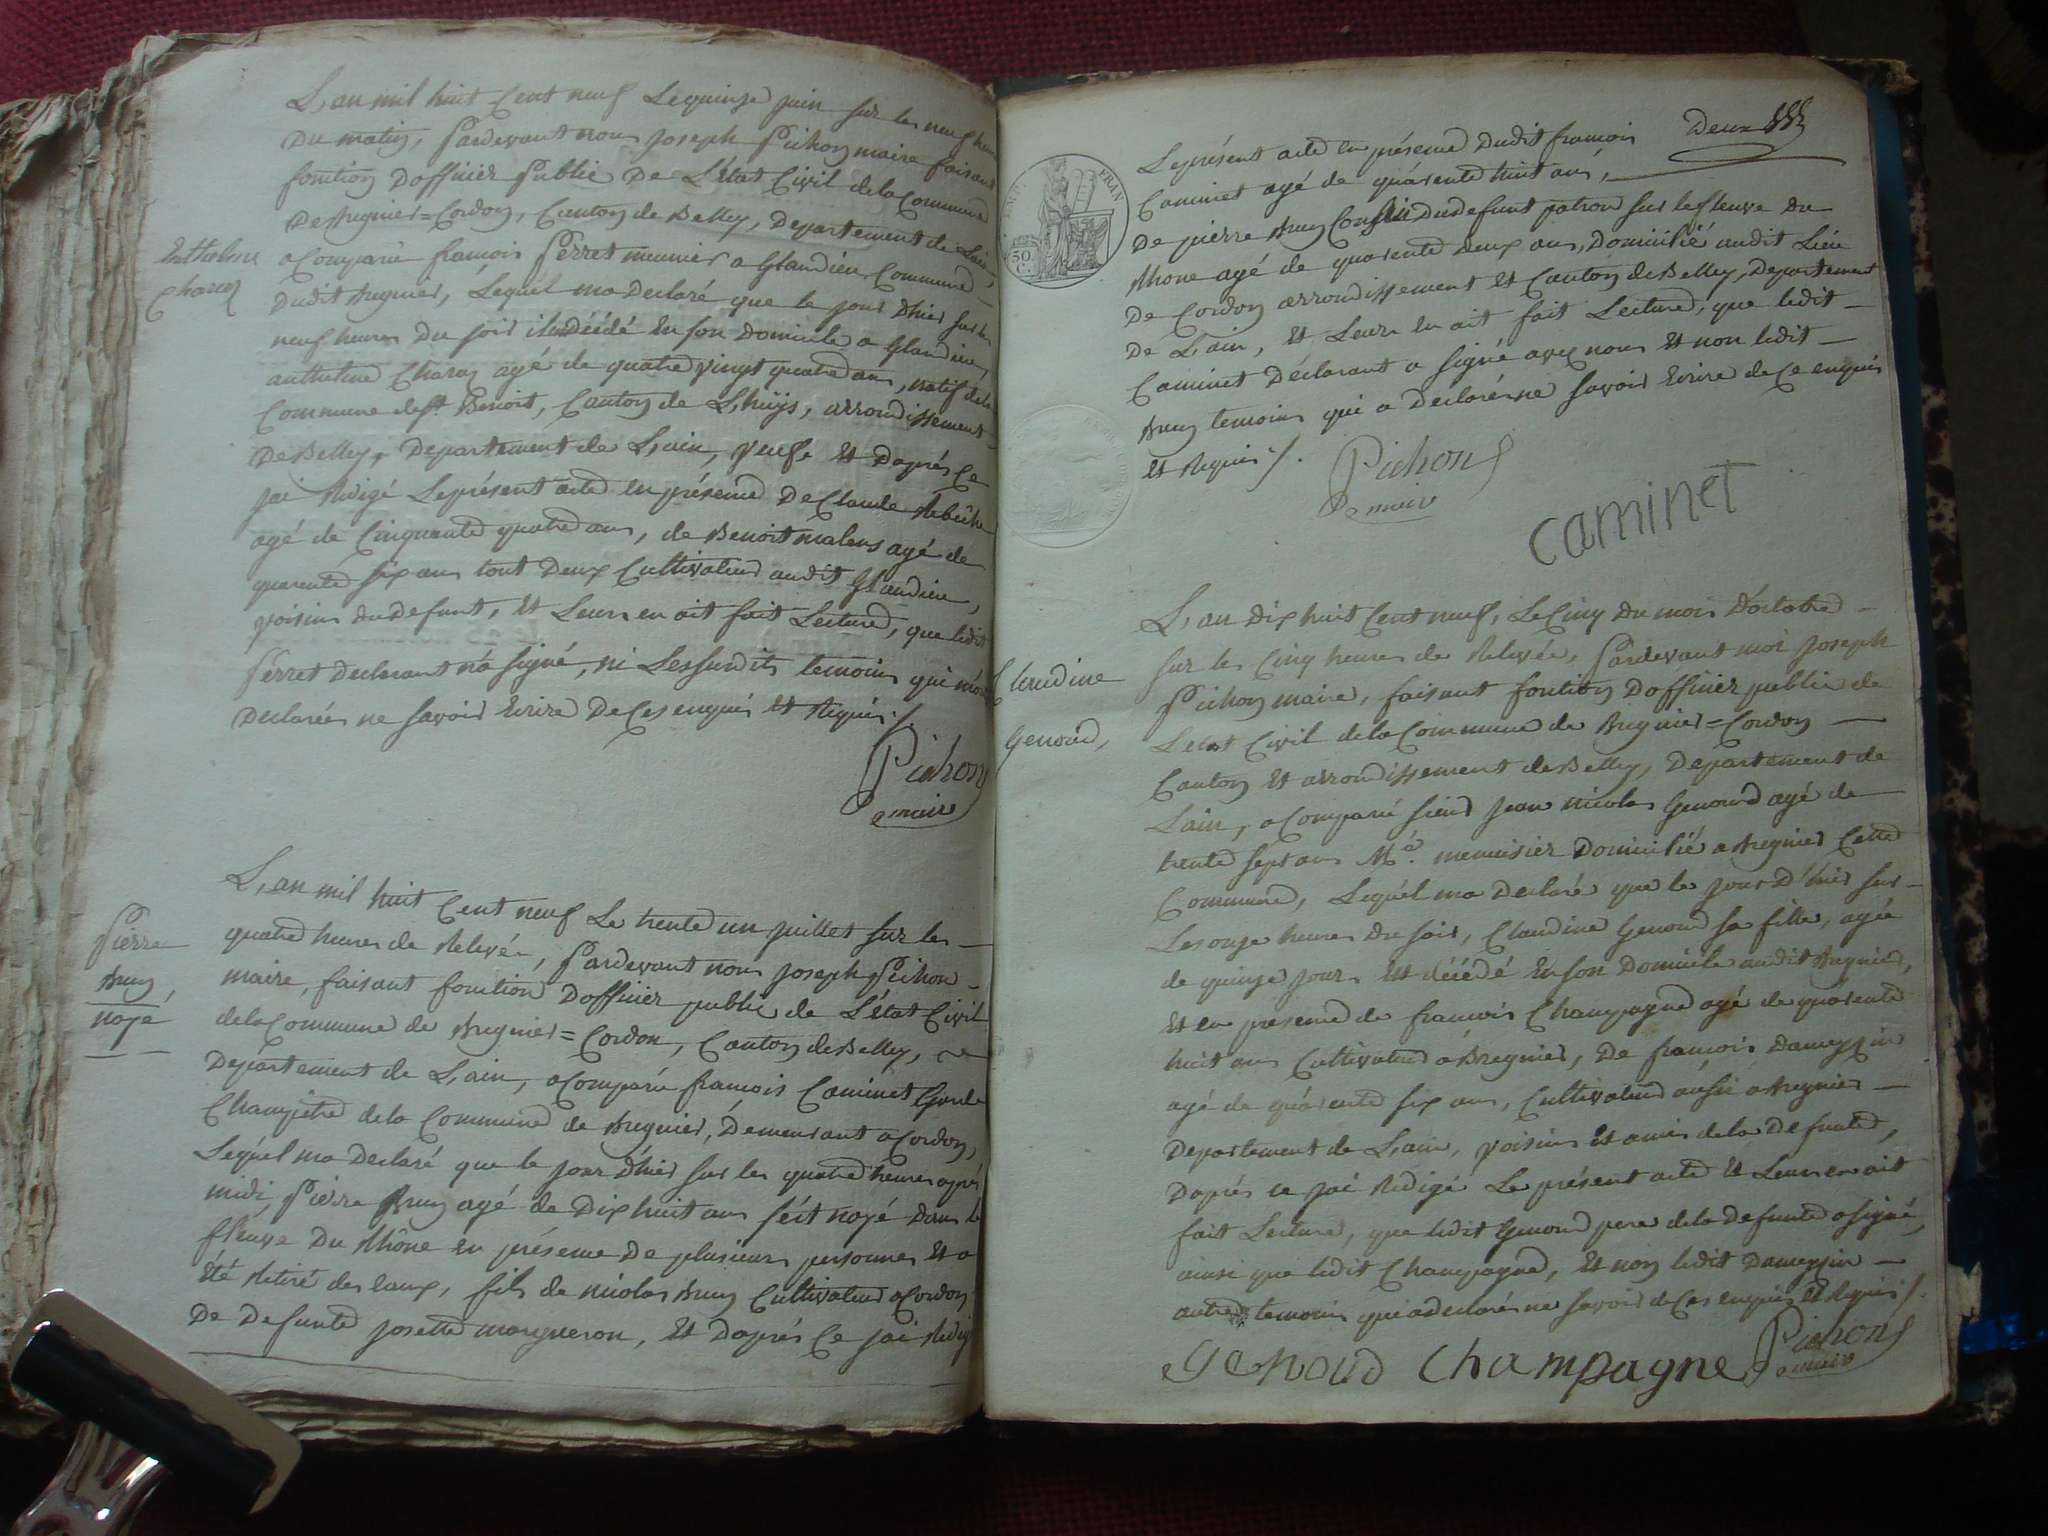 L'an mil huit Cent neuf Le quinze juin sur les neuf heures
Du matin, Pardevant nous joseph Pichon maire faisant
fonction D'officier Public De L'état Civil de la Commune
De Bregnier=Cordon, Canton de Belley, Departement de L'ain,
a Comparu françois Perret meunier a Glandieu Commune
Dudit Bregnier, Lequel ma Declaré que le jour D'hier sur les
neuf heures Du soir est décédé En son Domicile a Glandieu
anthelme Charvy agé de quatre vingt quatre ans, natif de la
Commune de St. Benoit, Canton de L'huys, arrondissement
De Belley, Departement de L'ain, veuf Et D'après Ce
jai Rédigé Le présent acte En présence De Claude
agé de Cinquante quatre ans, de Benoit agé de
quarente six ans tout Deux Cultivateurs audit Glandieu,
voisins du defunt, Et Leurs en ait fait Lecture, que ledit
Perret Declarant n'a signé, ni Les susdits temoins qui m'ont
Declarés ne savoir Ecrire De Ces enquis Et Requis ./.
Pichon
maire
Anthelme
Charvy
L'an mil huit Cent neuf Le trente un juillet sur les
quatre heures de Relevée, Pardevant nous joseph Pichon
maire, faisant fonction D'officier public de L'état Civil
de la Commune de Bregnier=Cordon, Canton de Belley,
Departement de L'ain, a Comparu françois Caminet Garde
Champêtre de la Commune de Bregnier, Demeurant a Cordon,
Lequel ma Declaré que le jour D'hier sur les quatre heures après
midi, Pierre Bruy agé de Dix huit ans s'est noyé Dans le
fleuve Du Rhône En présence De plusieurs personnes Et a
Eté Retiré des eaux, fils de nicolas Bruy Cultivateur a Cordon
De Defunte josette margueron, Et D'après Ce jai Rédigé
Pierre
Bruy,
noyé
Deux
Le présent acte En présence Dudit françois
Caminet agé de quarente huit ans,
De pierre Bruy Cousin Du defunt patron sur le fleuve Du
Rhone agé de quarente Deux ans, Domicilié audit Lieu
De Cordon arrondissement Et Canton de Belley, Departement
De L'ain, Et Leurs En ait fait Lecture, que ledit
Caminet Déclarant a signé avec nous Et non ledit
Bruy temoins qui a Declarés ne savoir Ecrire de Ce enquis
Et Requis ./.
Pichon
maire
caminet
EMP. FRAN
50
C.
L'an Dix huit Cent neuf, Le Cinq Du mois D'octobre
sur les Cinq heures de Relevée, Pardevant moi joseph
Pichon maire, faisant fonction D'officier public de
L'etat Civil de la Commune de Bregnier=Cordon
Canton Et arrondissement de Belley, Departement de
L'ain, a Comparu sieur jean nicolas Genoud agé de
trente sept ans Me. menuisier Domicilié a Bregnier Cette
Commune, Lequel ma Declaré que le jour D'hier sur
Les onze heures Du soir, Claudine Genoud sa fille, agée
de quinze jours Est décédé En son Domicile audit Bregnier,
Et en presence de francois Champagne agé de quarente
huit ans Cultivateur a Bregnier, De francois Dameysin
agé de quarente six ans, Cultivateur aussi a Bregnier
Departement de L'ain, voisins Et amis de la Defunte,
D'après Ce jai Rédigé Le présent acte Et Leurs en ait
fait Lecture, que ledit Genoud pere de la Defunte a signé,
ainsi que ledit Champagne, Et non ledit Dameysin
autre temoins qui a declarés ne savoir de Ces enquis Et Requis ./.
Genoud Champagne Pichon
maire
Claudine
Genoud,